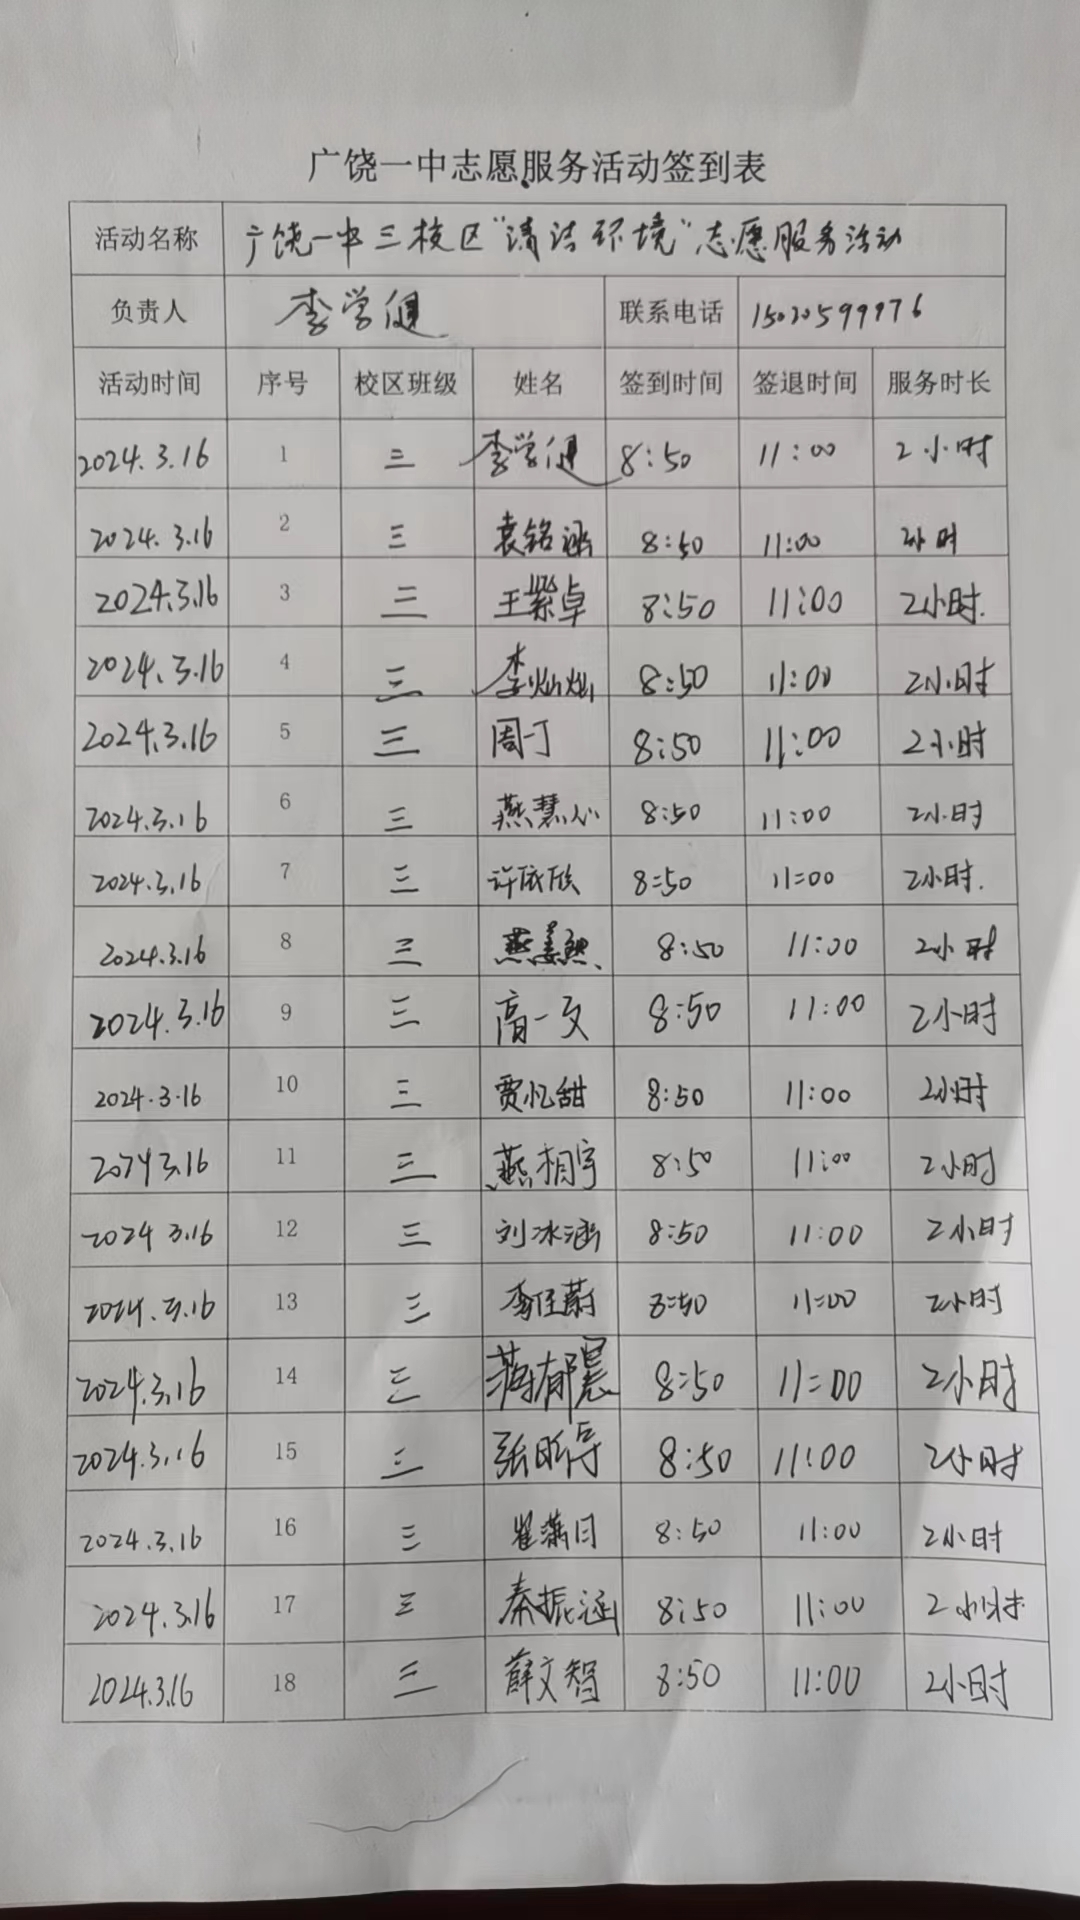 广饶一中志愿服务活动签到表
活动名称 广饶一中三校区“清洁环境”志愿服务活动
负责人 李学健 联系电话 15020599976
活动时间 序号 校区班级 姓名 签到时间 签退时间 服务时长
2024.3.16 1 三 李学健 8:50 11:00 2小时
2024.3.16 2 三 袁铭涵 8:50 11:00 2小时
2024.3.16 3 三 王紫卓 8:50 11:00 2小时.
2024.3.16 4 三 李灿灿 8:50 11:00 2小时
2024.3.16 5 三 周一丁 8:50 11:00 2小时
2024.3.16 6 三 燕慧心 8:50 11:00 2小时
2024.3.16 7 三 许依欣 8:50 11:00 2小时.
2024.3.16 8 三 燕 8:50 11:00 2小时
2024.3.16 9 三 高一文 8:50 11:00 2小时
2024.3.16 10 三 贾忆甜 8:50 11:00 2小时
2024 3.16 11 三 燕相宇 8:50 11:00 2小时
2024 3.16 12 三 刘冰涵 8:50 11:00 2小时
2024.3.16 13 三 李佳蔚 8:50 11:00 2小时
2024.3.16 14 三 蒋郁晨 8:50 11:00 2小时
2024.3.16 15 三 张昕 8:50 11:00 2小时
2024.3.16 16 三 崔满月 8:50 11:00 2小时
2024.3.16 17 三 秦振涵 8:50 11:00 2小时
2024.3.16 18 三 薛文智 8:50 11:00 2小时